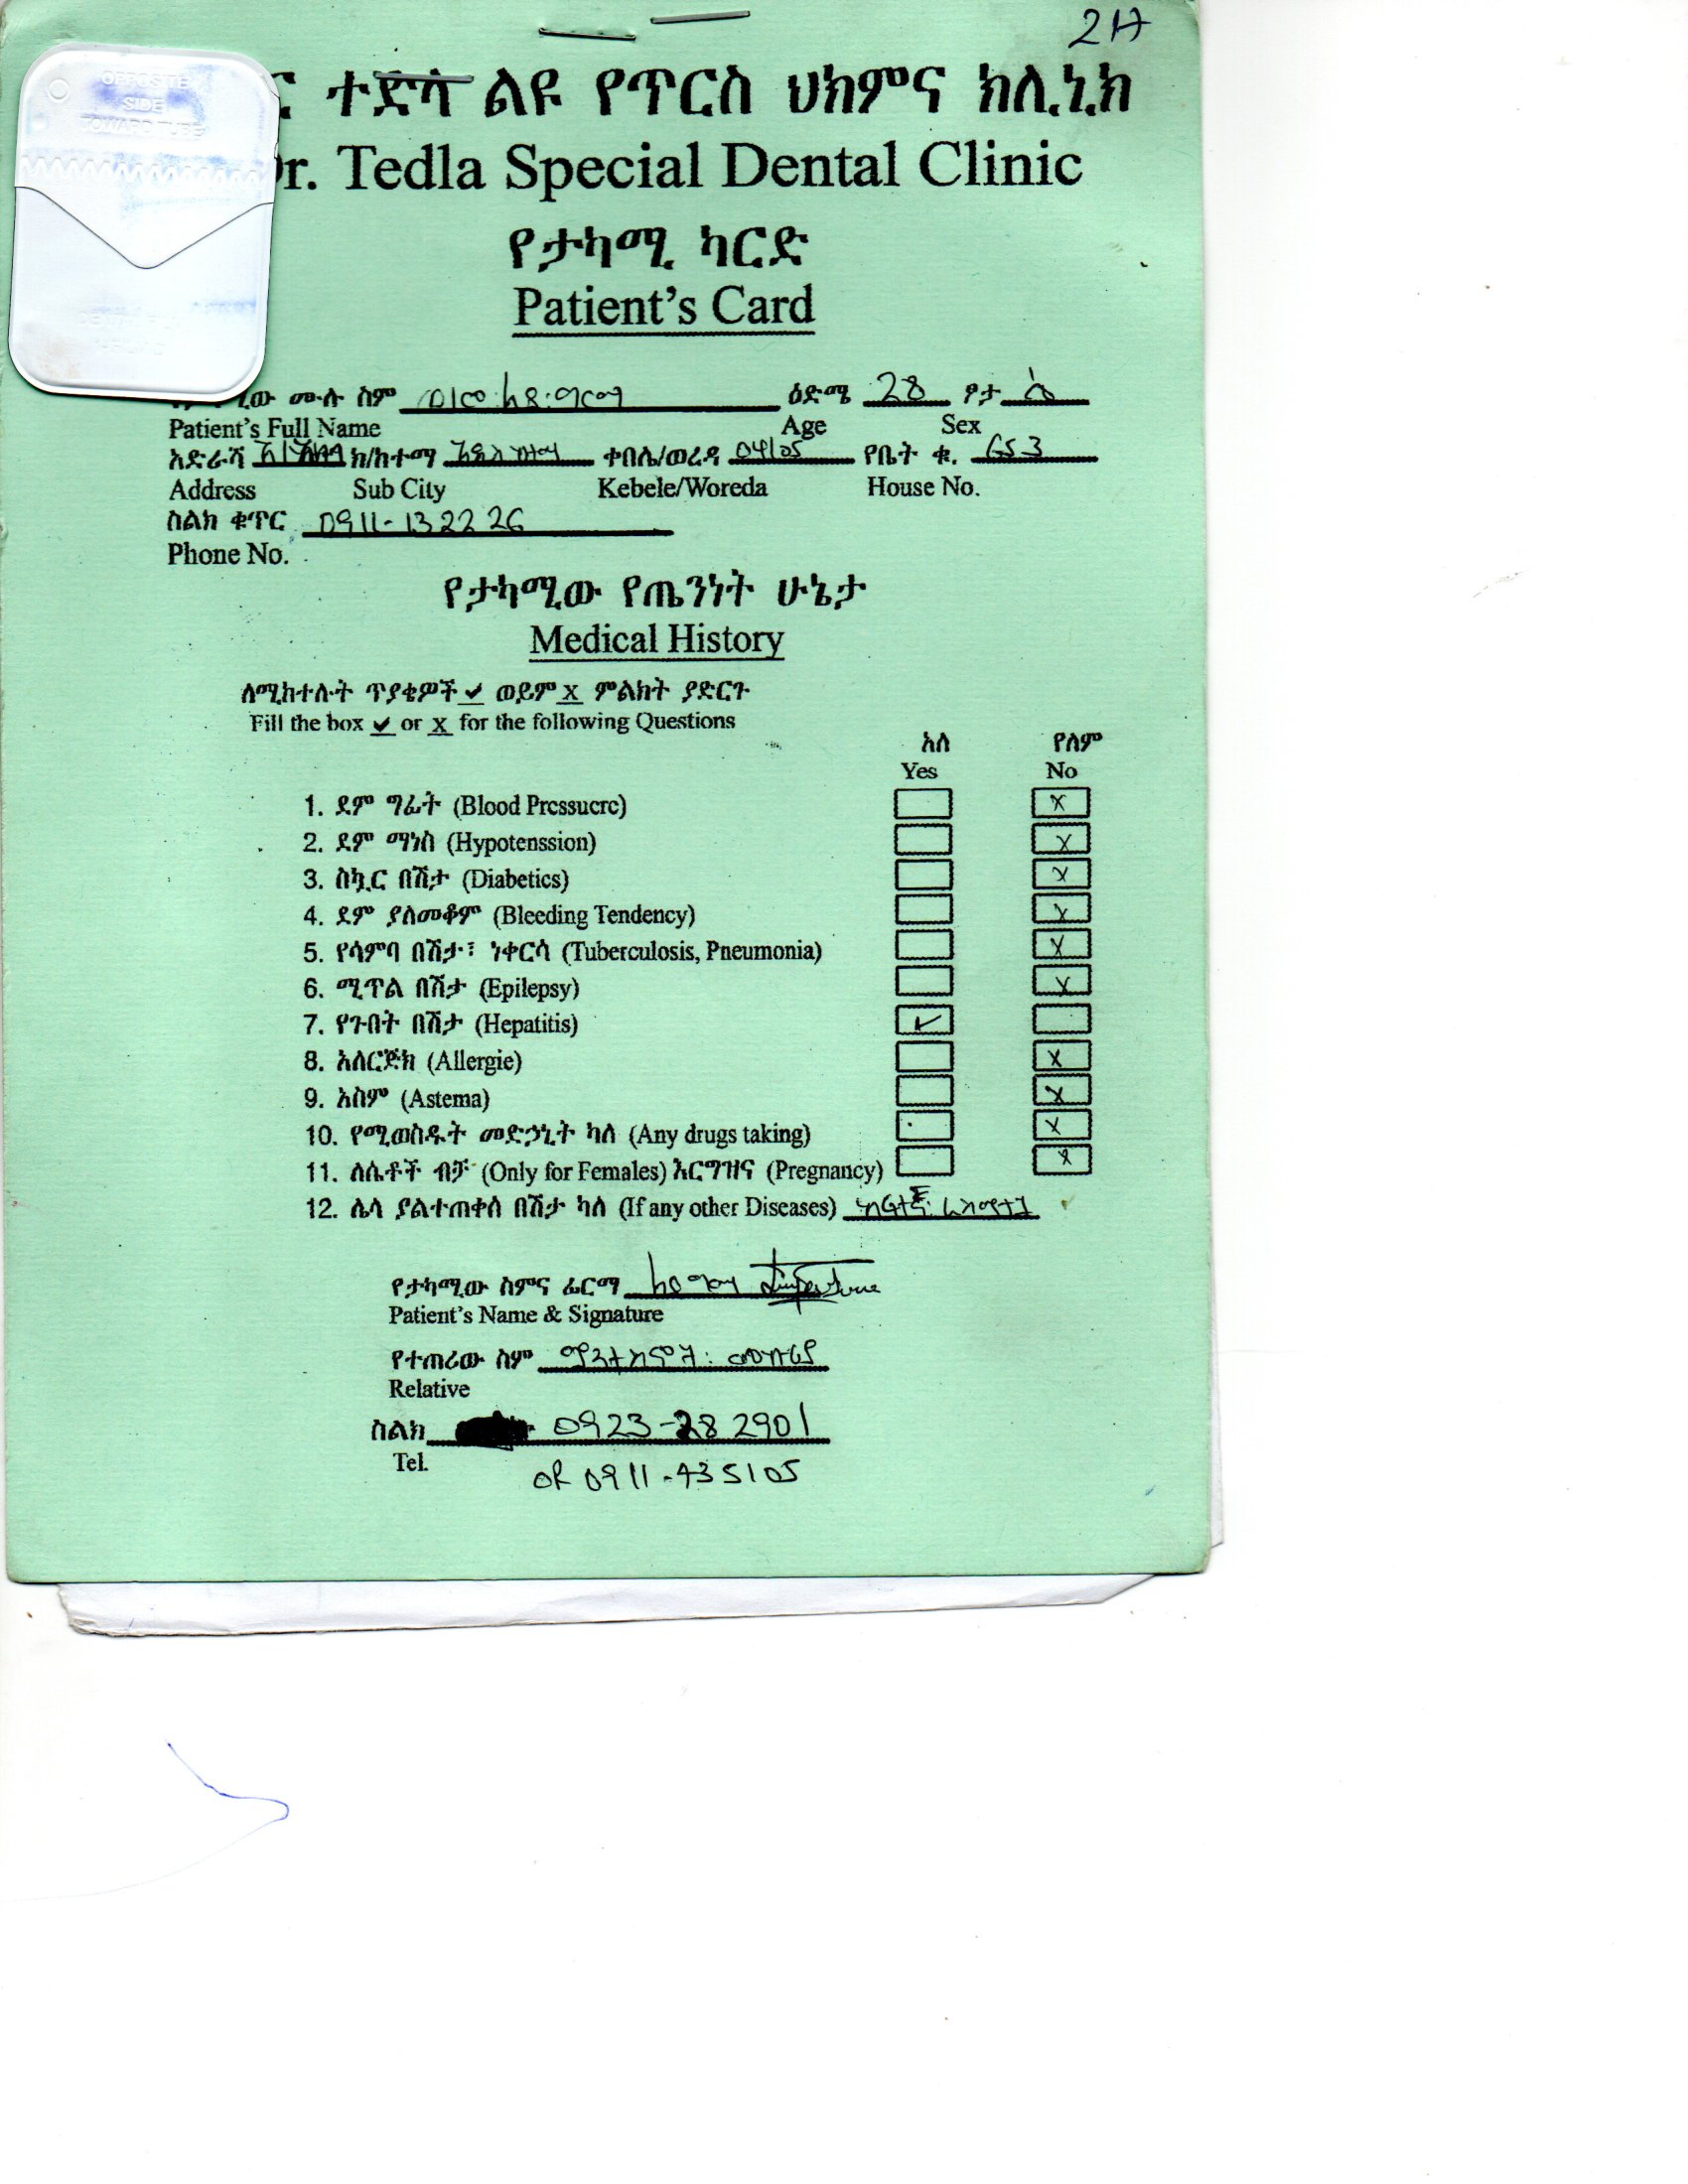 2H
OPPOSITE
SIDE
TOWARD TUBE
ር ተድላ ልዩ የጥርስ ህክምና ክሊኒክ
Dr. Tedla Special Dental Clinic
የታካሚ ካርድ
Patient's Card
ሙሉ ስም ዕድሜ 28 ፆታ ሴ
Patient's Full Name Age Sex
አድራሻ ክ/ከተማ አዲስ ከተማ ቀበሌ/ወረዳ 04/05 የቤት ቁ. 653
Address Sub City Kebele/Woreda House No.
ስልክ ቁጥር 0911-13 22 26
Phone No.
የታካሚው የጤንነት ሁኔታ
Medical History
ለሚከተሉት ጥያቄዎች ✔ ወይም x ምልክት ያድርጉ
Fill the box ✔ or x for the following Questions
አለ የለም
Yes No
1. ደም ግፊት (Blood Pressuere) x
2. ደም ማነስ (Hypotenssion) x
3. ስኳር በሽታ (Diabetics) x
4. ደም ያለመቆም (Bleeding Tendency) x
5. የሳምባ በሽታ፣ ነቀርሳ (Tuberculosis, Pneumonia) x
6. ሚጥል በሽታ (Epilepsy) x
7. የጉበት በሽታ (Hepatitis) ✓
8. አለርጅክ (Allergie) x
9. አስም (Astema) x
10. የሚወስዱት መድኃኒት ካለ (Any drugs taking) x
11. ለሴቶች ብቻ (Only for Females) እርግዝና (Pregnancy) x
12. ሌላ ያልተጠቀሰ በሽታ ካለ (If any other Diseases)
የታካሚው ስምና ፊርማ
Patient's Name & Signature
የተጠሪው ስም
Relative
ስልክ 0923-28 2901
Tel.
or 0911-435105